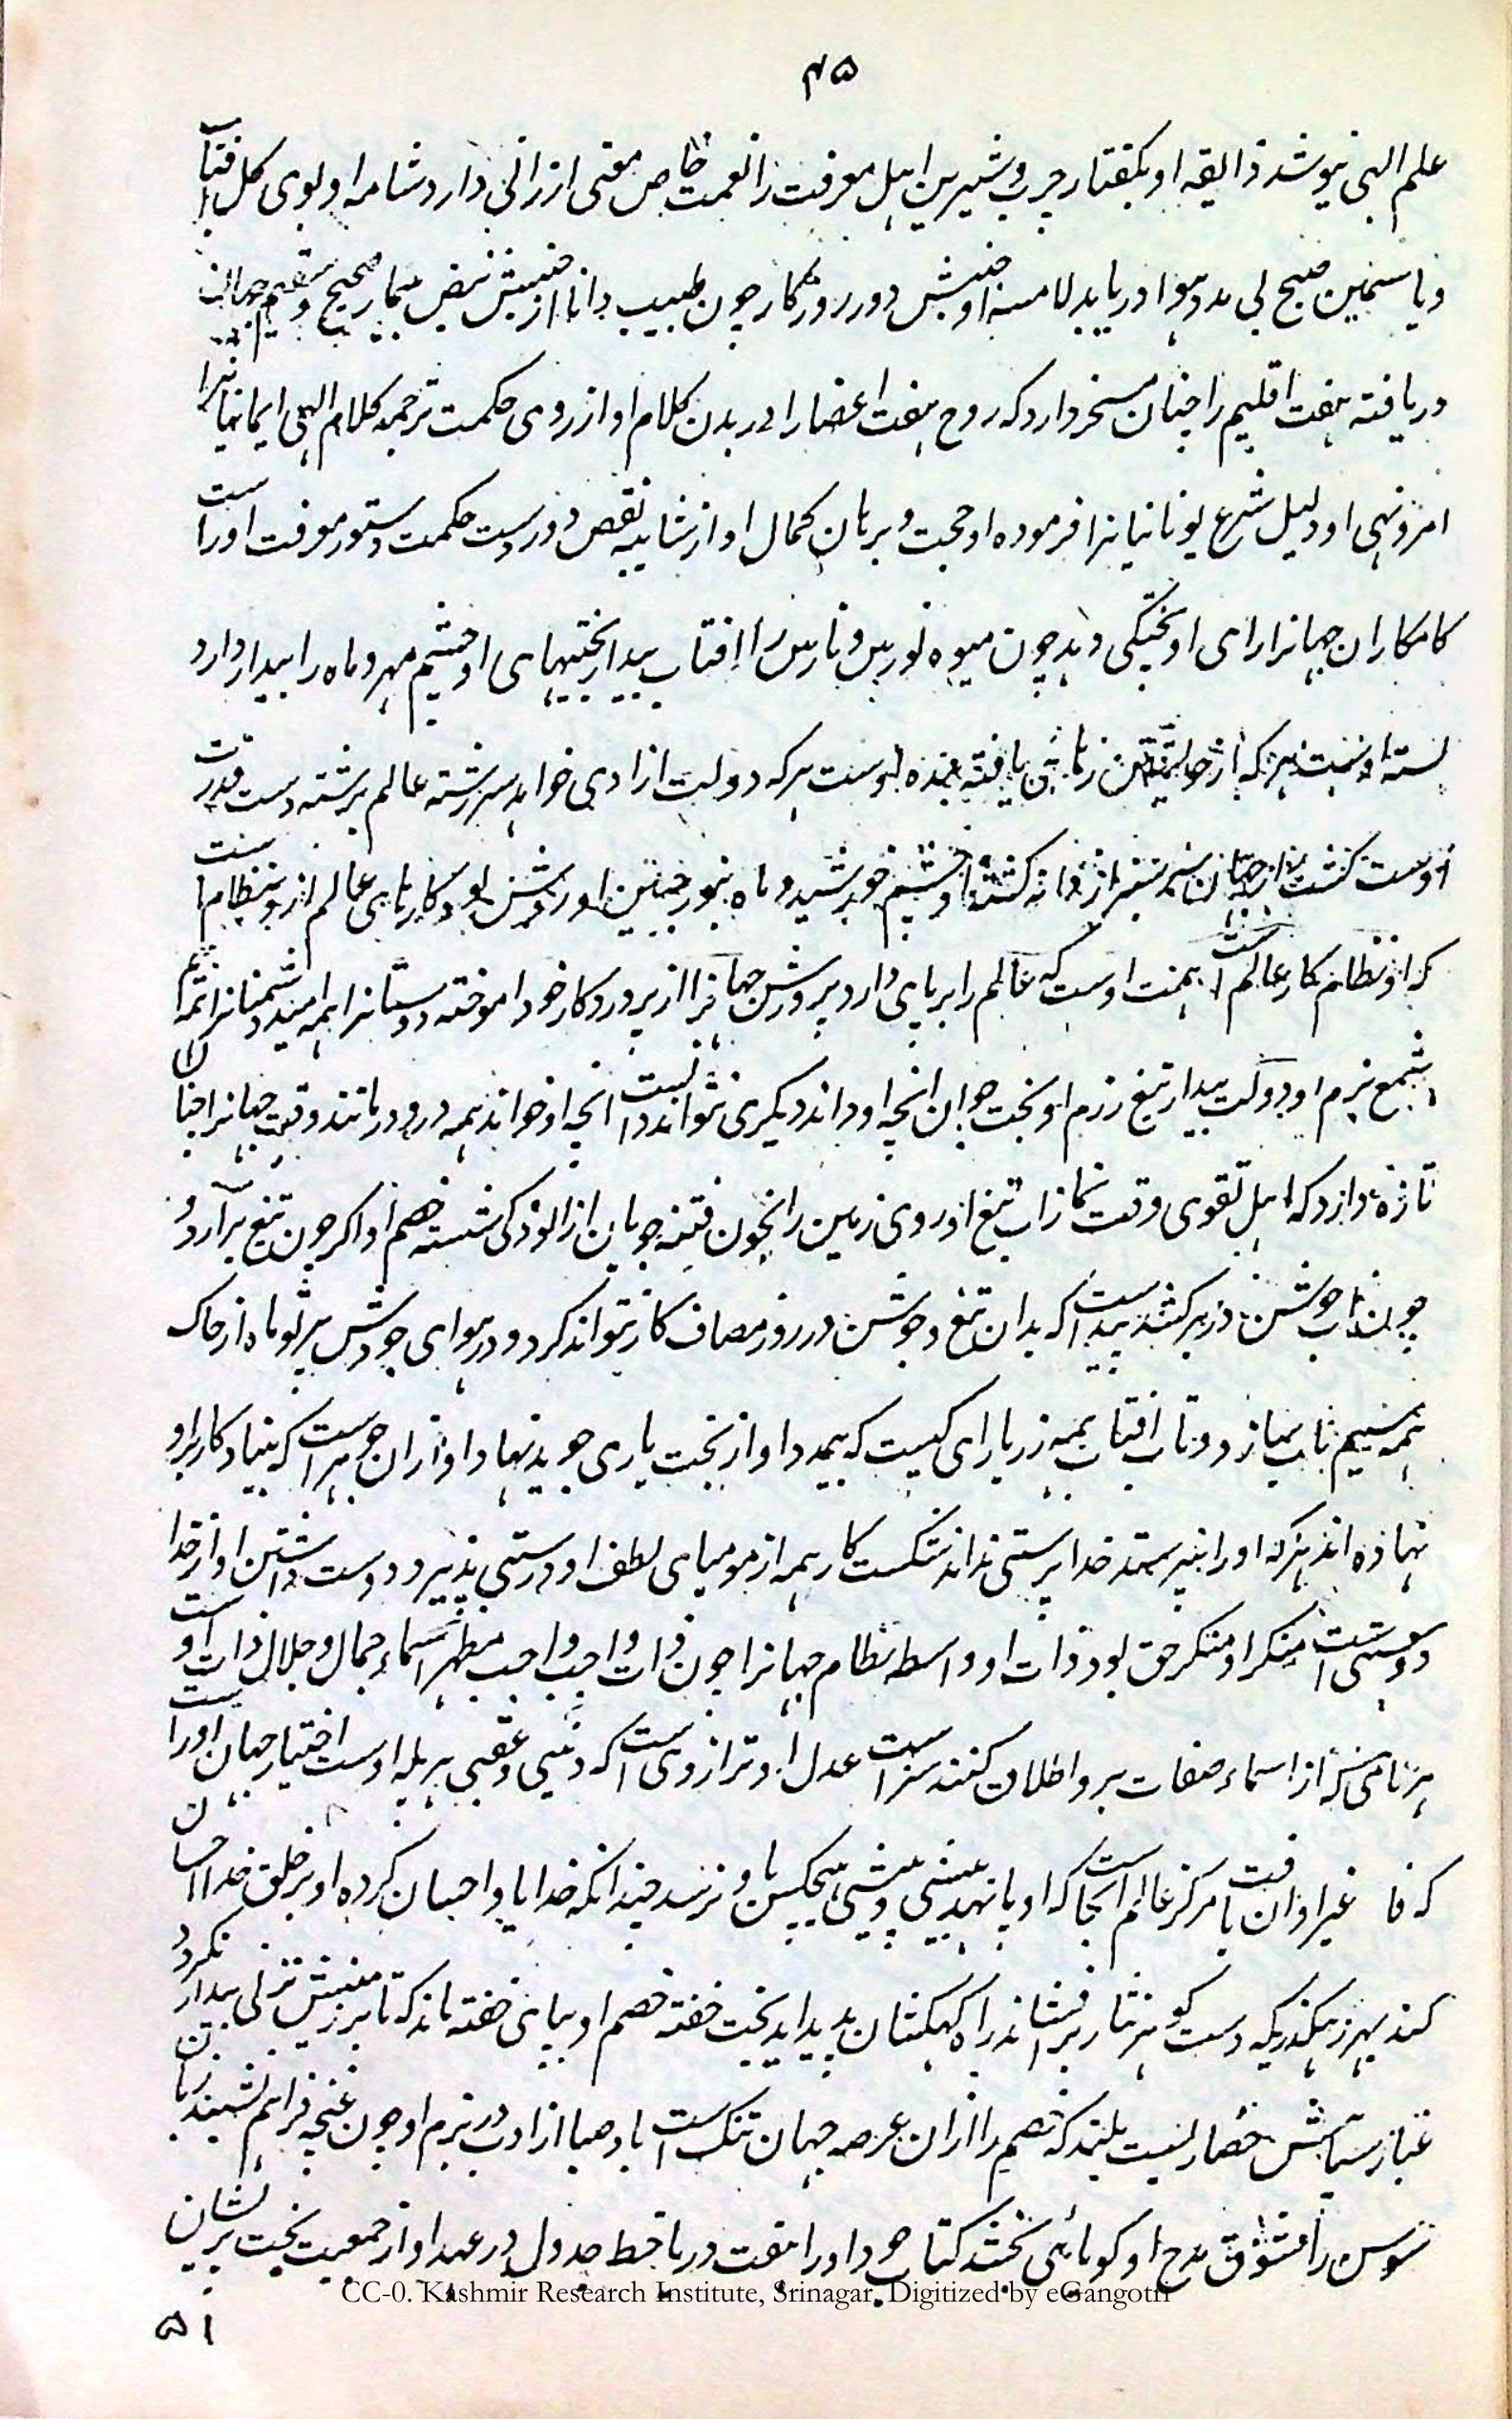 ۴۵
علم الهی نیوشد ذایقه او بگفتار چرب و شیرین اهل معرفت را نعمت خاص معنی ارزانی دارد شامه او بوی گل افتاب
و یاسمین صبح بی مدد هوا دریابد لامسه او جنبش دور روزگار چون طبیب دانا از جنبش نبض بیمار صحیح و سقیم
دریافته هفت اقلیم را چنان مسخر دارد که روح هفت اعضا را در بدن کلام او از روی حکمت ترجمه کلام الهی ایمانیانرا
امر و نهی او دلیل شرع یونانیانرا فرموده او حجت و برهان کمال او از شایبه نقص دورست حکمت دستور معرفت اوراست
کامکاران جهانرا رای او پختگی دهد چون میوه نورس و نارس را افتاب بیدار بختیهای او چشم مهر و ماه را بیدار دارد
بسته اوست هرکه از یافته بنده اوست هرکه دولت ازادی خواهد سررشته عالم برشته دست قدرت
اوست کشته او چشم خورشید و ماه بنور جبین او روشن بود کارهای عالم ازو بنظام
که او نظام کار عالم است بهمت اوست که عالم را برپای دارد پرورش جهانرا از پروردگار خود اموخته دوستانرا همه امید دشمنانرا همه بیم
شمع بزم او دولت بیدار تیغ رزم او بخت جوان انچه او داند دیگری نتواند دانست انچه او خواند همه درو درمانند وقت جهانرا چنان
تازه دارد که اهل تقوی وقت نماز اب تیغ او روی زمین را بخون فتنه جویان از الودگی شسته خصم او اگر چون تیغ برآرد و
چون اب جوشن در بر کشد پیداست که بدان تیغ و جوشن در روز مصاف کار نتواند کرد و در هوای جودش پرتو ماه از خاک
همه سیم ناب سازد و تاب افتاب همه زر یارای کیست که او از بخت یاری جوید نهاد او ازان جوهر است که بنیاد کار برو
نهاده اند هرکه او را نپرستد خدا پرستی نداند شکست کار همه از مومیای لطف او درستی پذیرد دوست داشتن او از خدا
دوستی است منکر او منکر حق بود ذات او واسطه نظام جهانرا چون ذات واجب واجب مظهر اسماء جمال و جلال ذات اوست و
هر نامی که از اسماء صفات برو اطلاق کنند سزاست عدل او ترازوی است که دنیی و عقبی هر پله اوست اختیار جهان اوراست
که غیر او ان یافت مرکز عالم انجاست که او پا نهد بیشی و پیشی هیچکس باو نرسد چندانکه خدا باو احسان کرده او بر خلق خدا احسان
کند بهر رهگذریکه دست گوهر نثار برفشاند راه کهکشان پدید اید بخت خفته خصم او بپای خفته ماند که تا بر زمینش نزنی بیدار نگردد
غبار سپاهش حصاریست بلند که خصم را ازان عرصه جهان تنگ است باد صبا از ادب در بزم او چون غنچه فراهم نشیند زبان
سوسن را شوق مدح او گویائی بخشد کتاب جود او را هفت دریا خط جدول در عهد او از جمعیت بخت پریشان
CC-0. Kashmir Research Institute, Srinagar. Digitized by eGangotri
۵۱